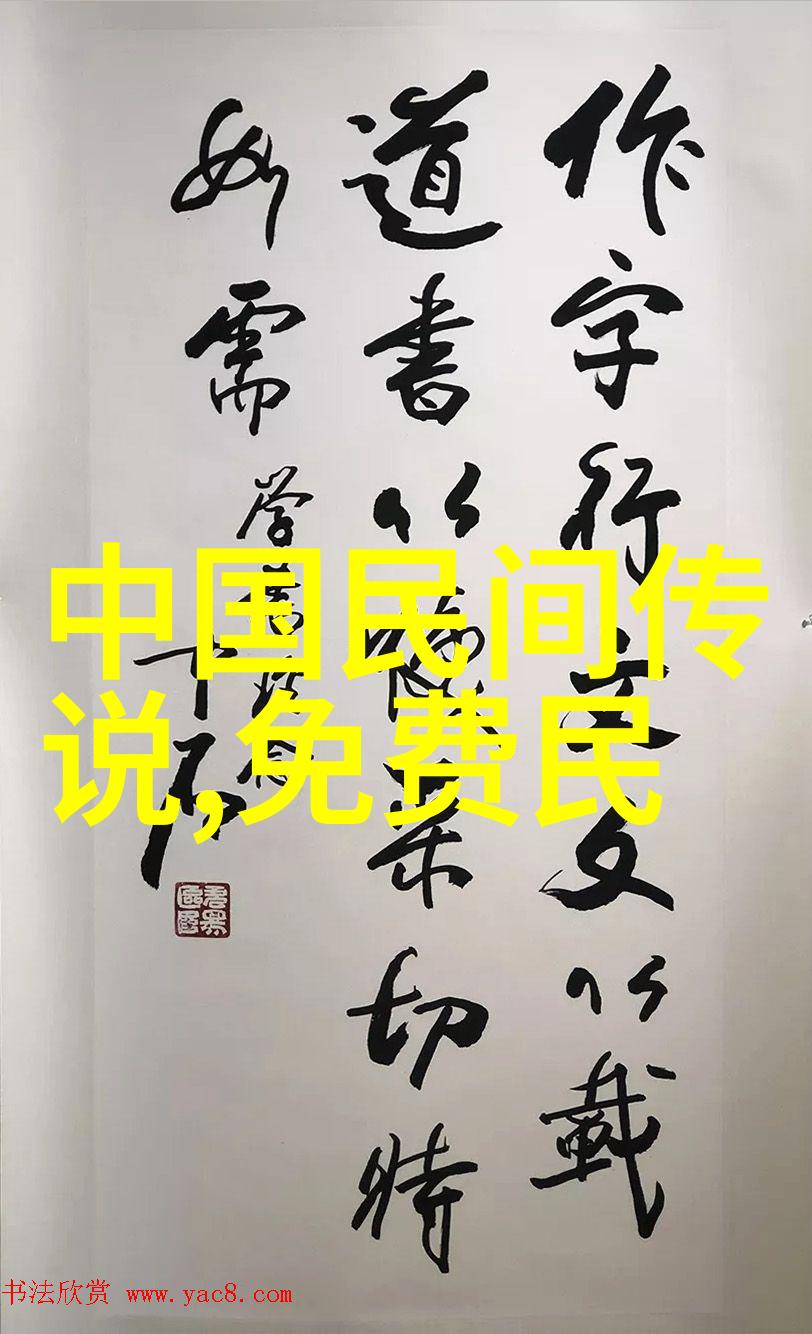 作字行文文以載
道書以采切時
如需
中国民间传
说,免费民
书法欣赏 www.yac8.com